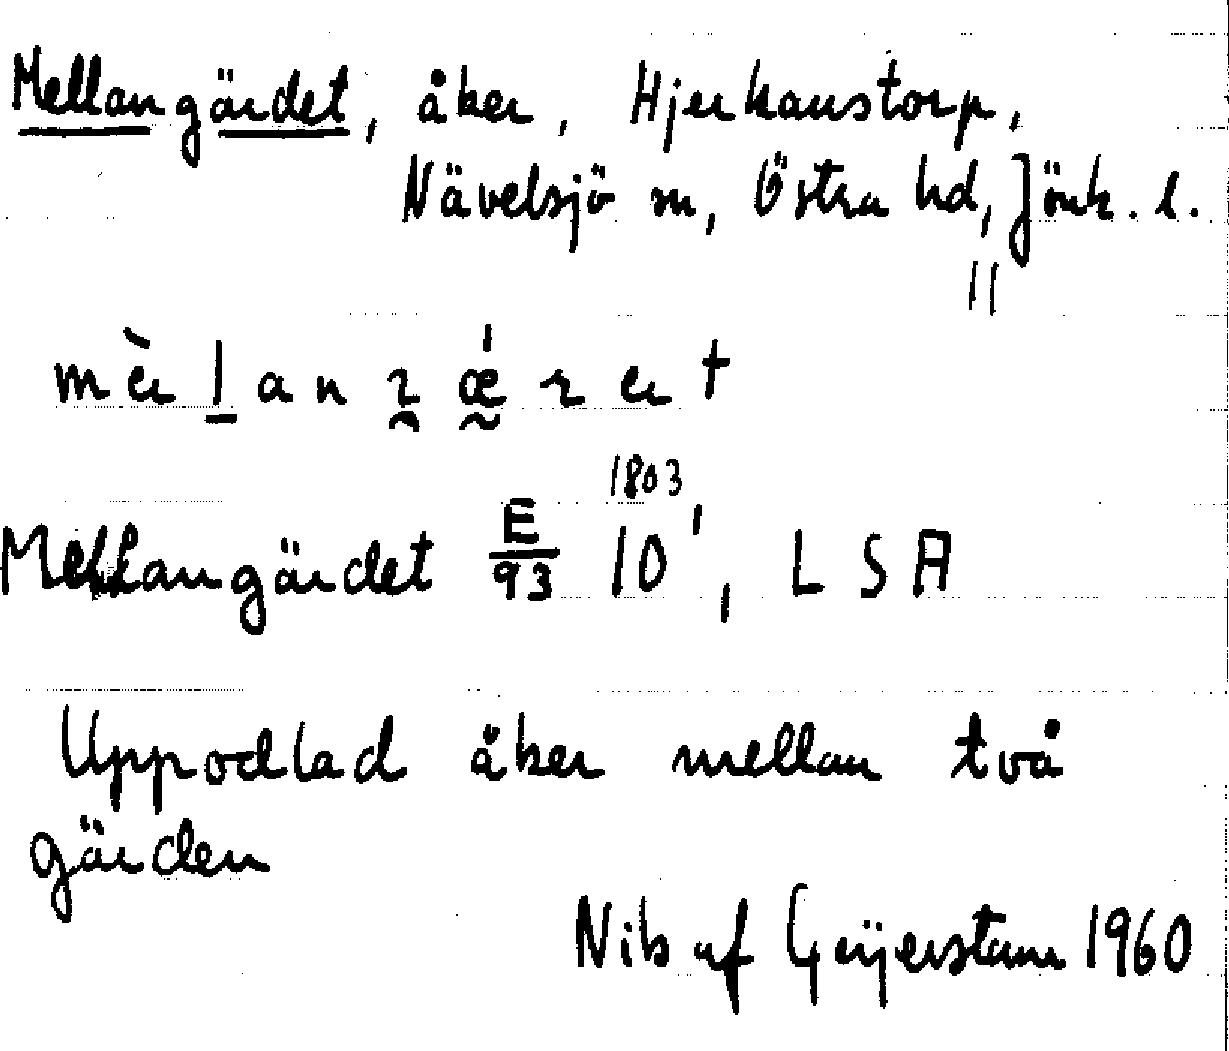 Mellangärdet, åker, Hjerkanstorp,
Nävelsjö sn, Östra hd, Jönk. l.
11
Mellangärdet E/93 10', LSA
1803
Uppodlad åker mellan två
gärden
Nils af Geijerstam 1960